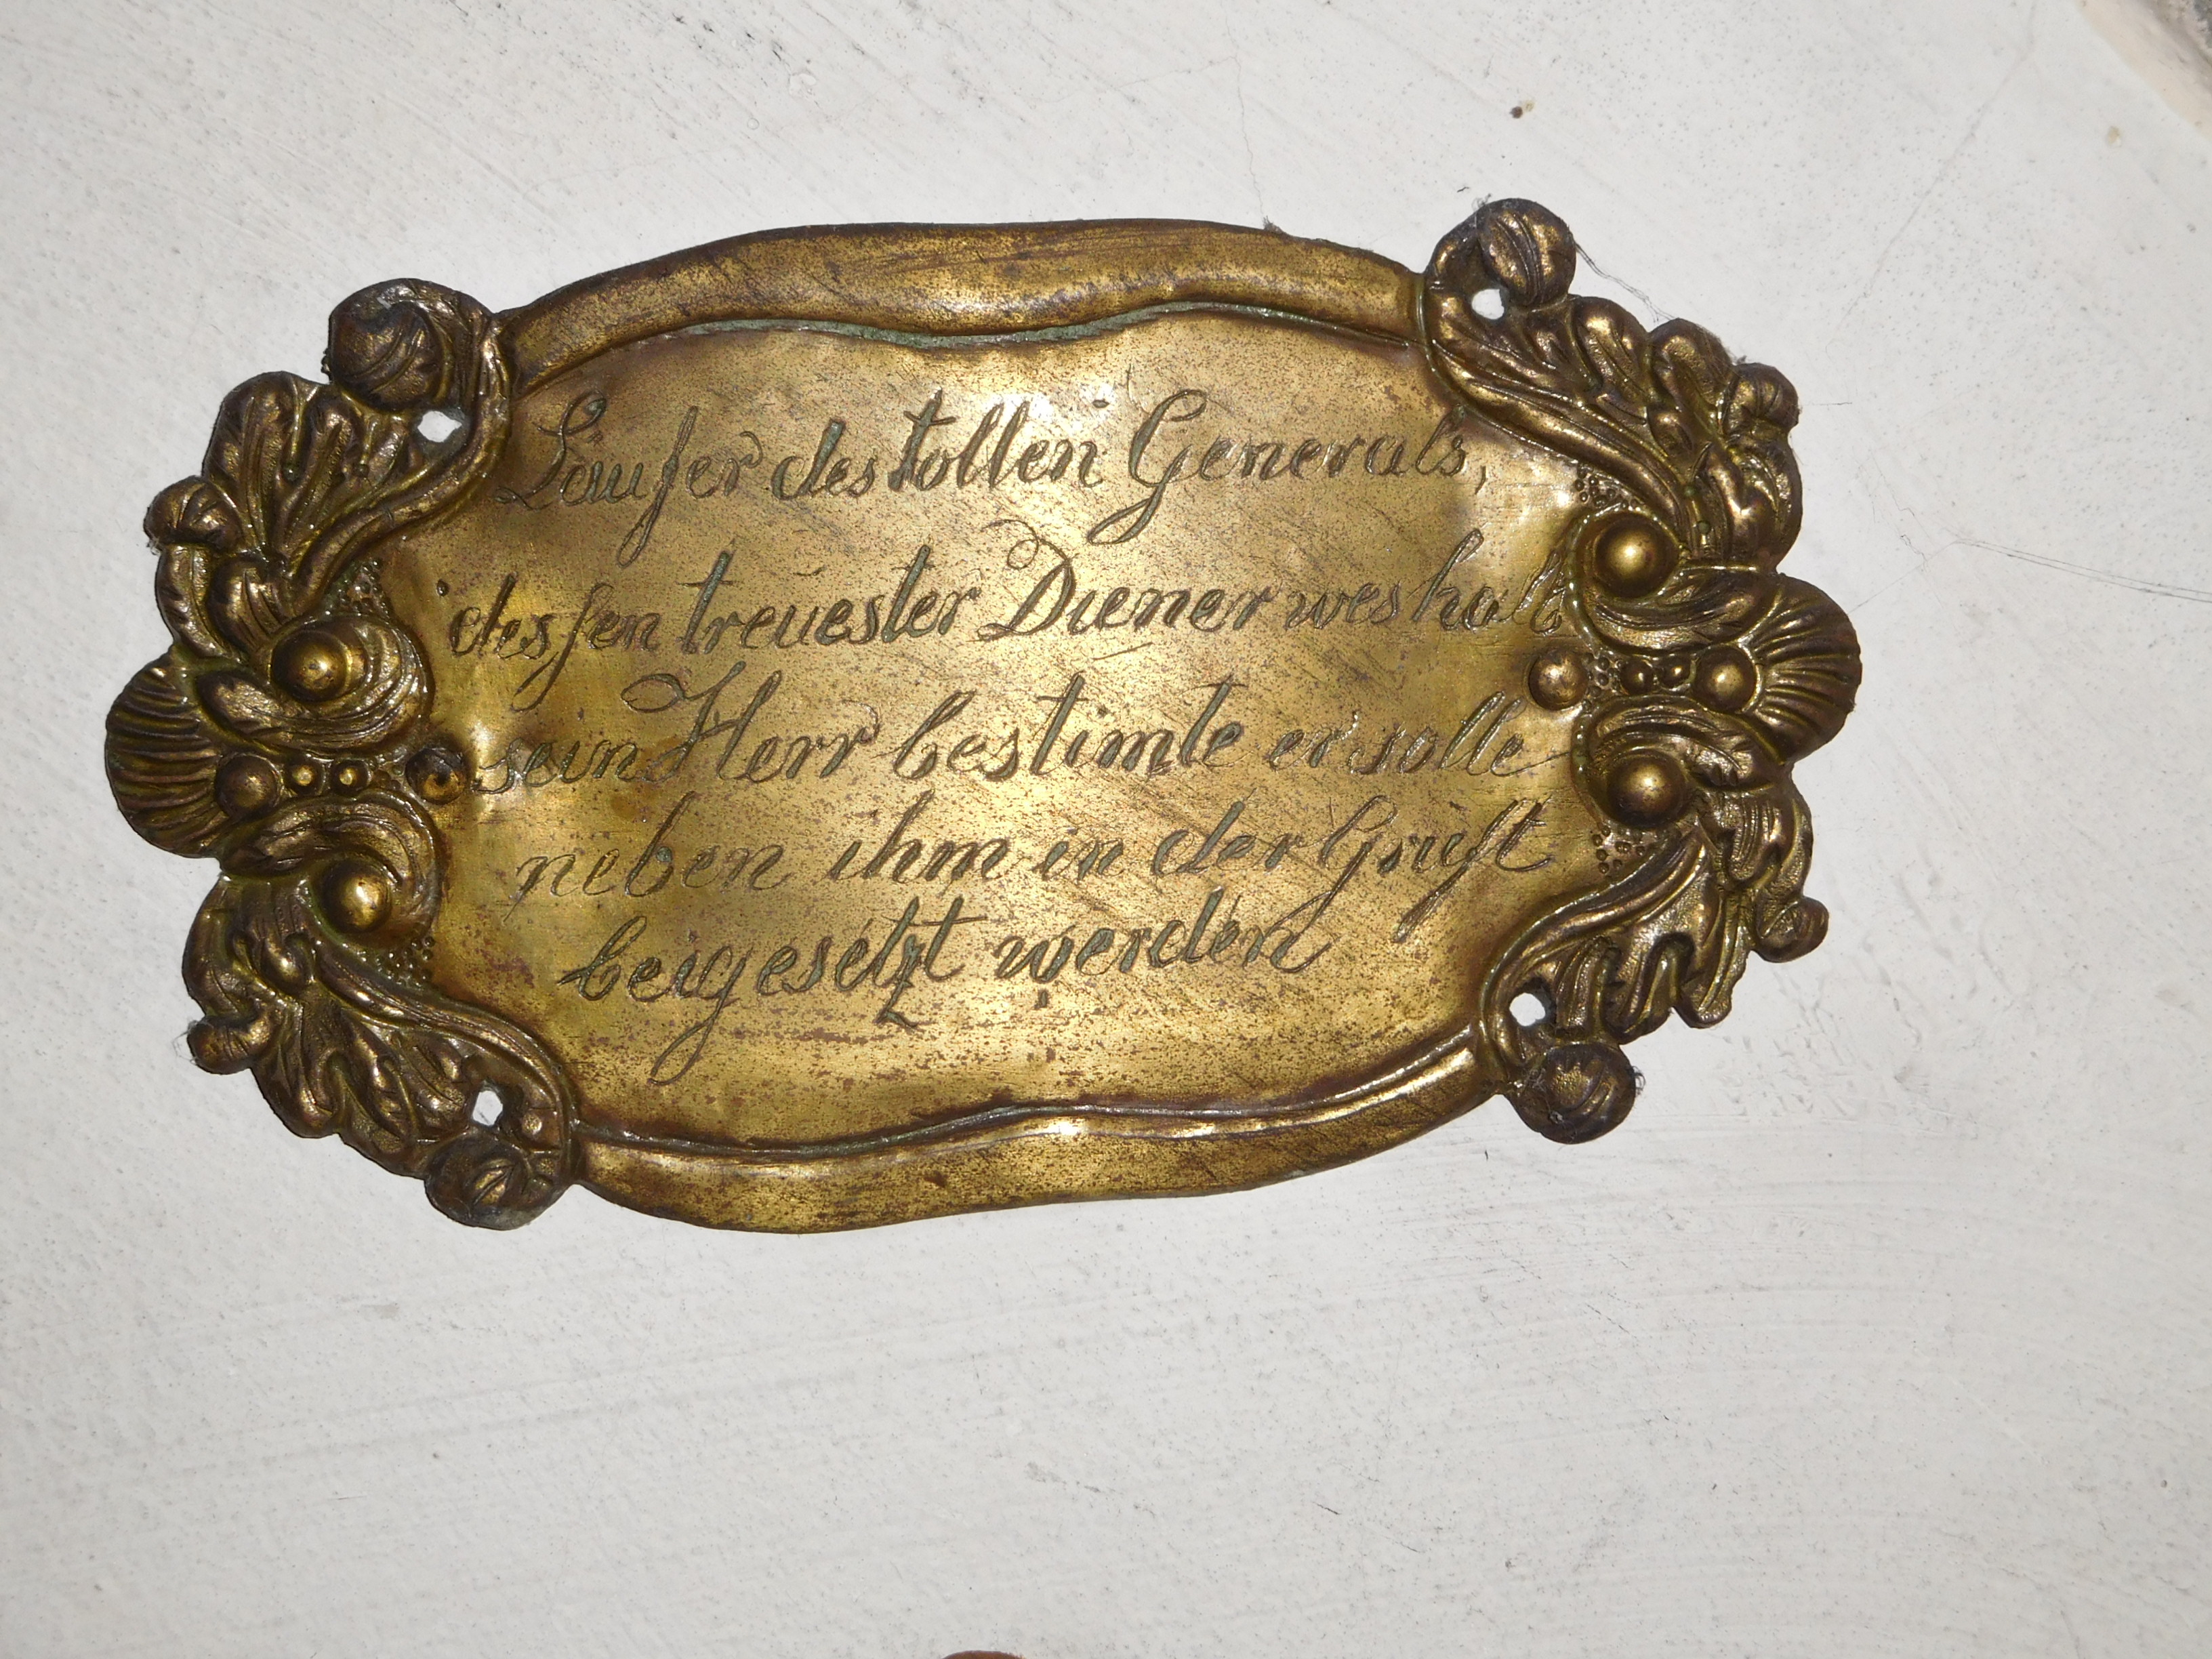 Laufer des tollen Generals,
dessen treuester Diener weshalb
sein Herr bestimte er solle
neben ihm in der Gruft
beigesetzt werden